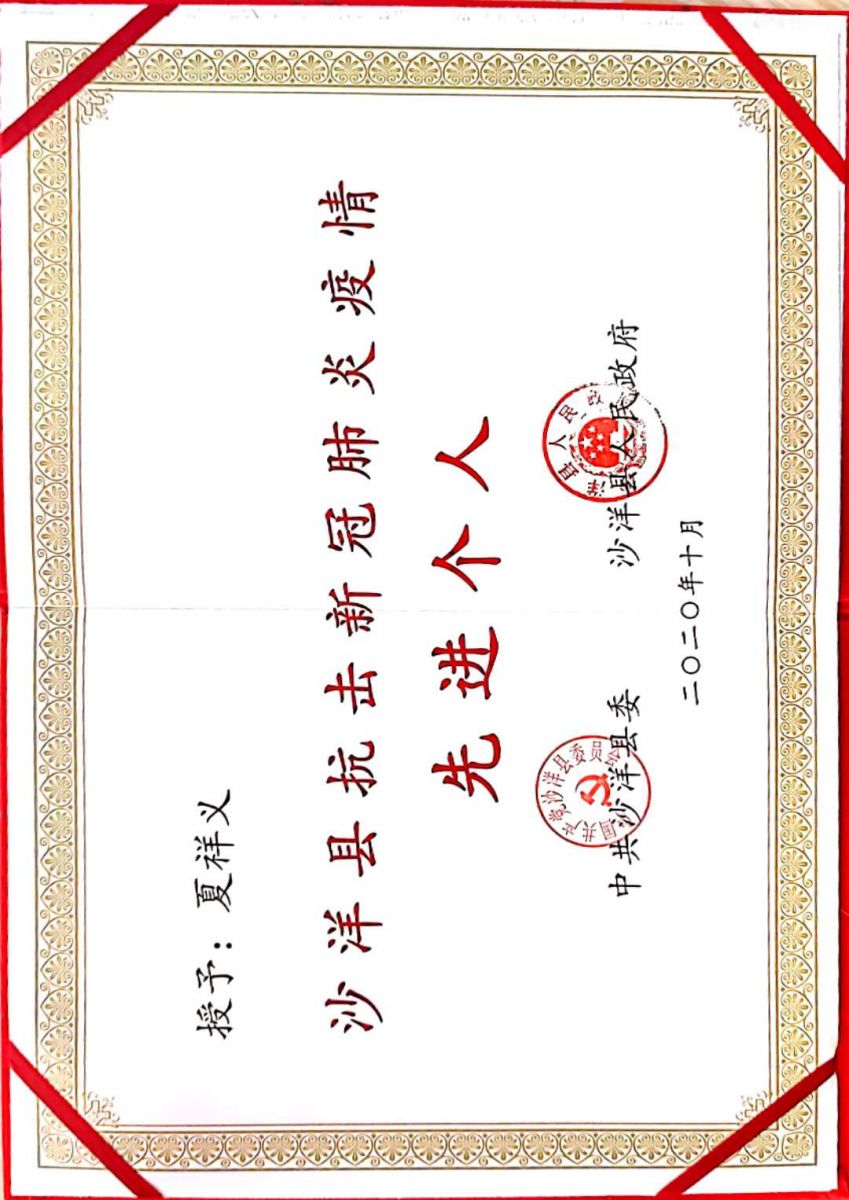 授予：夏祥义
沙洋县抗击新冠肺炎疫情
先进个人
中共沙洋县委
沙洋县人民政府
二〇二〇年十月
国共产党沙洋县委员会
洋县人民政